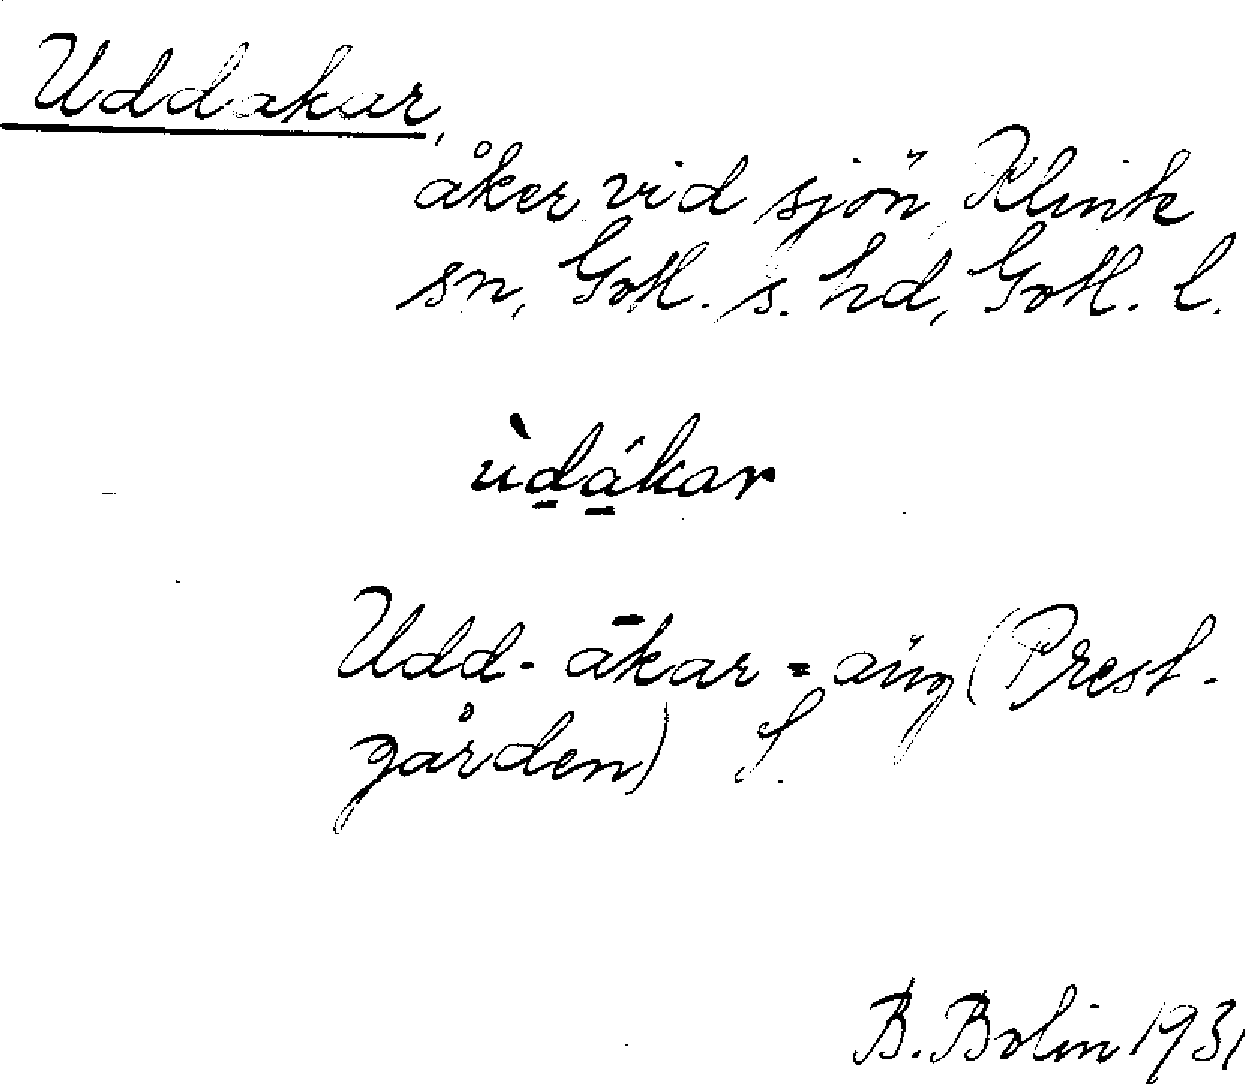 Uddakar,
åker vid sjön, Klinte
sn, Gotl. s. hd, Gotl. l.
ùd̠á̠kar
Udd-ākar = äng (Prest-
gården) S.
B. Bolin 1931